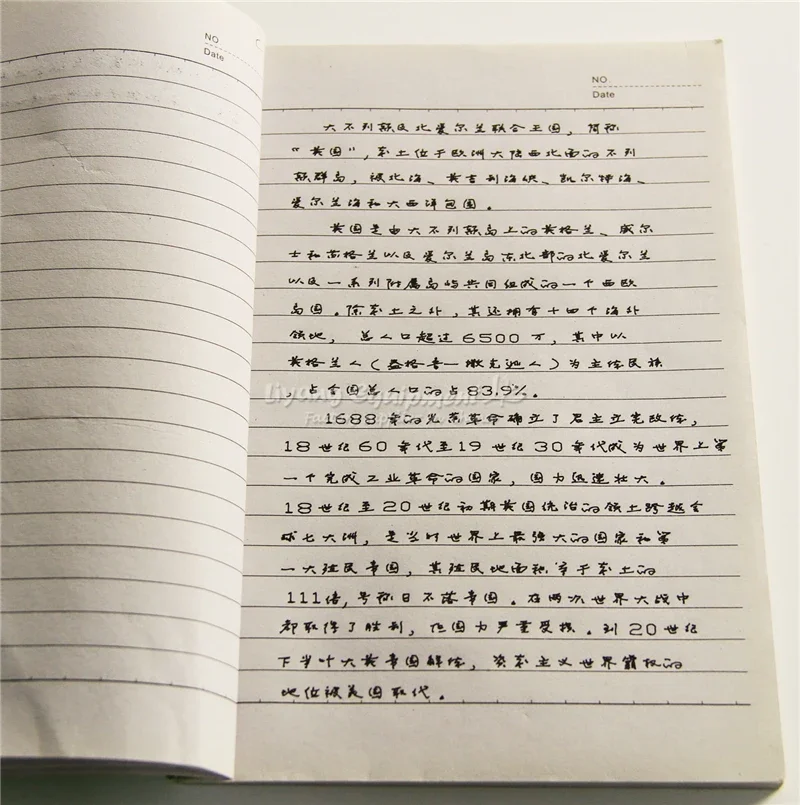 NO
Date
NO
Date
大不列颠及北爱尔兰联合王国，简称
“英国”，本土位于欧洲大陆西北面的不列
颠群岛，被北海、英吉利海峡、凯尔特海、
爱尔兰海和大西洋包围。
英国是由大不列颠岛上的英格兰、威尔
士和苏格兰以及爱尔兰岛东北部的北爱尔兰
以及一系列附属岛屿共同组成的一个西欧
岛国。除本土之外，其还拥有十四个海外
领地，总人口超过6500万，其中以
英格兰人（盎格鲁一撒克逊人）为主体民族
，占全国总人口的占83.9%。
1688年的光荣革命确立了君主立宪政体，
18世纪60年代至19世纪30年代成为世界上第
一个完成工业革命的国家，国力迅速壮大。
18世纪至20世纪初期英国统治的领土跨越全
球七大洲，是当时世界上最强大的国家和第
一大殖民帝国，其殖民地面积等于本土的
111倍，号称日不落帝国。在两次世界大战中
都取得了胜利，但国力严重受损。到20世纪
下半叶大英帝国解体，资本主义世界霸权的
地位被美国取代。
Liyang Equipment Co